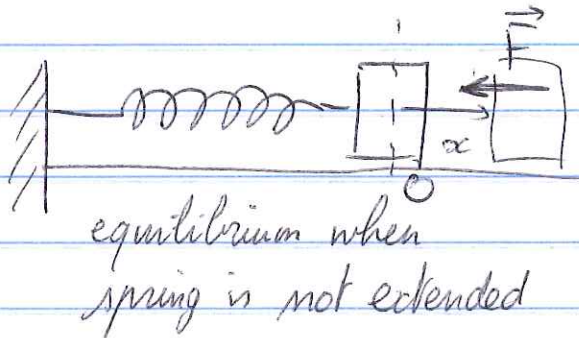 F
x
O
equilibrium when
spring is not extended